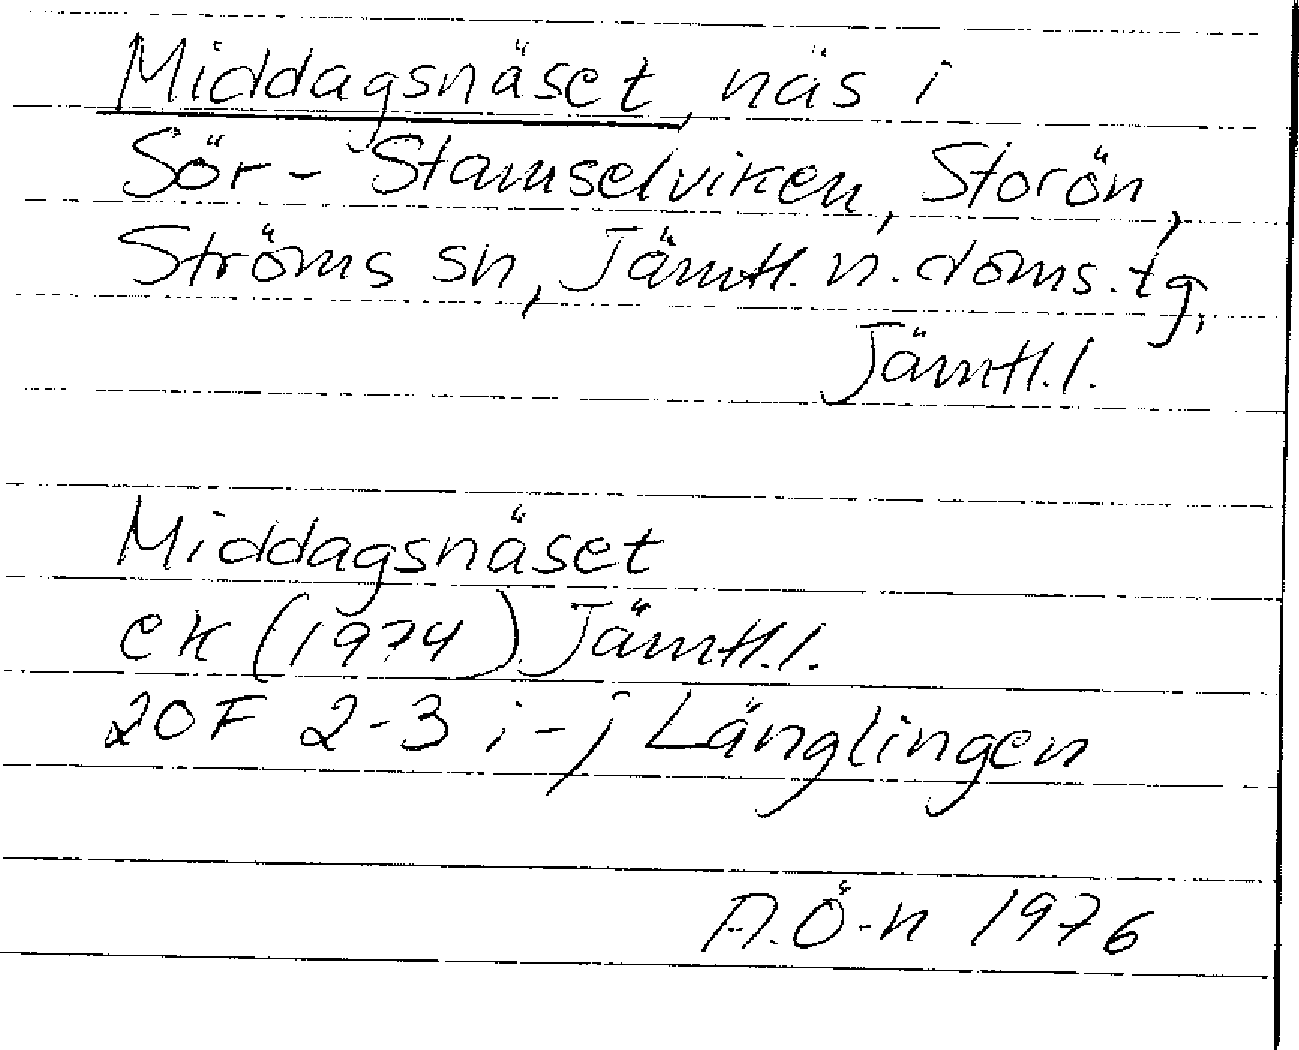 Middagsnäset, näs i
Sör-Stamselviken, Storön,
Ströms sn, Jämtl. n. doms. tg,
Jämtl. l.
Middagsnäset
ek (1974) Jämtl. l.
20F 2-3 i-j Länglingen
A.Ö-n 1976